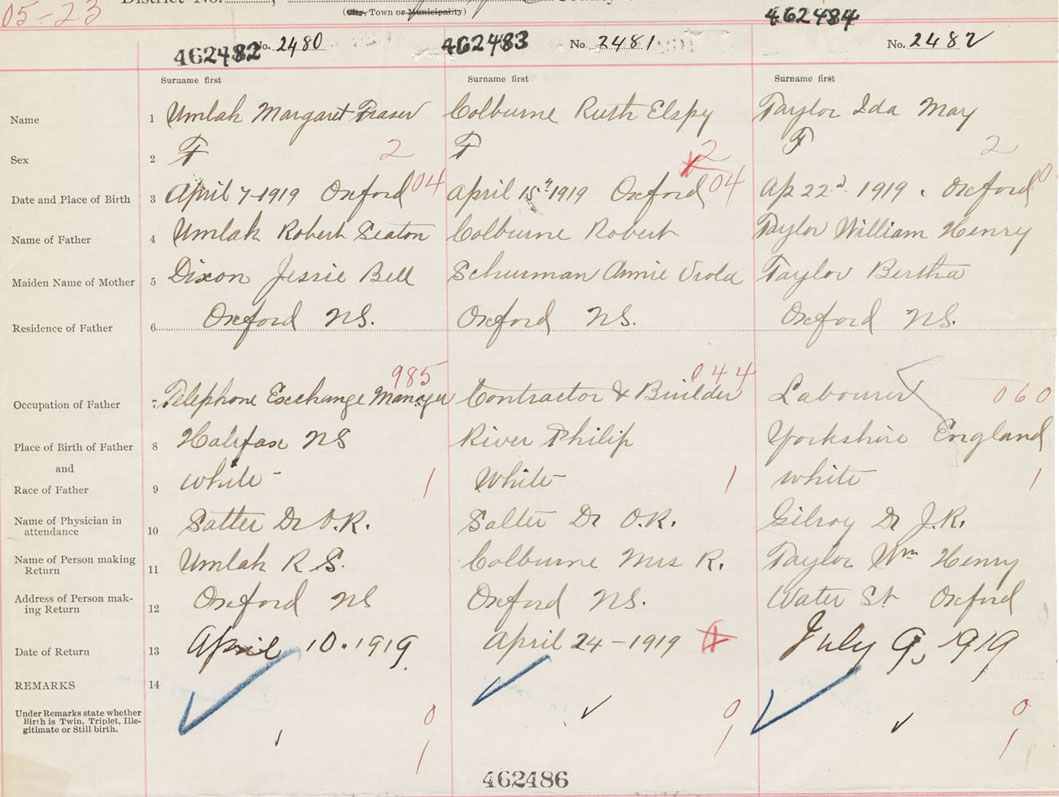 05-23
District No. , County
(City, Town or Municipality)
462482 No. 2480 462483 No 2481 462484 No. 2482
Surname first Surname first Surname first
Name 1 Umlah Margaret Fraser Colburne Ruth Elspy Taylor Ida May
Sex 2 F 2 F 2 F 2
Date and Place of Birth 3 April 7-1919 Oxford 04 April 15th 1919 Oxford 04 Ap 22d 1919. Oxford 0
Name of Father 4 Umlah Robert Seaton Colburne Robert Taylor William Henry
Maiden Name of Mother 5 Dixon Jessie Bell Schurman Annie Viola Taylor Bertha
Residence of Father 6 Oxford NS. Oxford NS. Oxford NS.
985 044
Occupation of Father 7 Telephone Exchange Manager Contractor & Builder Labourer 060
Place of Birth of Father 8 Halifax NS River Philip Yorkshire England
and
Race of Father 9 white 1 White 1 white 1
Name of Physician in attendance 10 Salter Dr O.R. Salter Dr O.R. Gilroy Dr J.R.
Name of Person making Return 11 Umlah R S. Colburne Mrs R. Taylor Wm Henry
Address of Person making Return 12 Oxford NS Oxford NS. Water St Oxford
Date of Return 13 April 10. 1919 April 24-1919 July 9, 1919
REMARKS 14
Under Remarks state whether Birth is Twin, Triplet, Illegitimate or Still birth. 0 0 0
1 1 1
462486